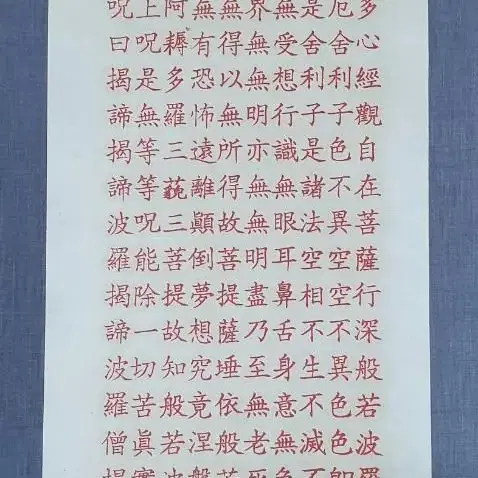 多心經觀自在菩薩行深般若波羅
厄舍利子色不異空空不異色色即
是舍利子是諸法空相不生不滅不
無受想行識無眼耳鼻舌身意無色
界無無明亦無無明盡乃至無老死
無得以無所得故菩提薩埵依般若
無有恐怖遠離顛倒夢想究竟涅槃
阿耨多羅三藐三菩提故知般若波
上呪是無等等呪能除一切苦眞實
呪曰揭諦揭諦波羅揭諦波羅僧揭